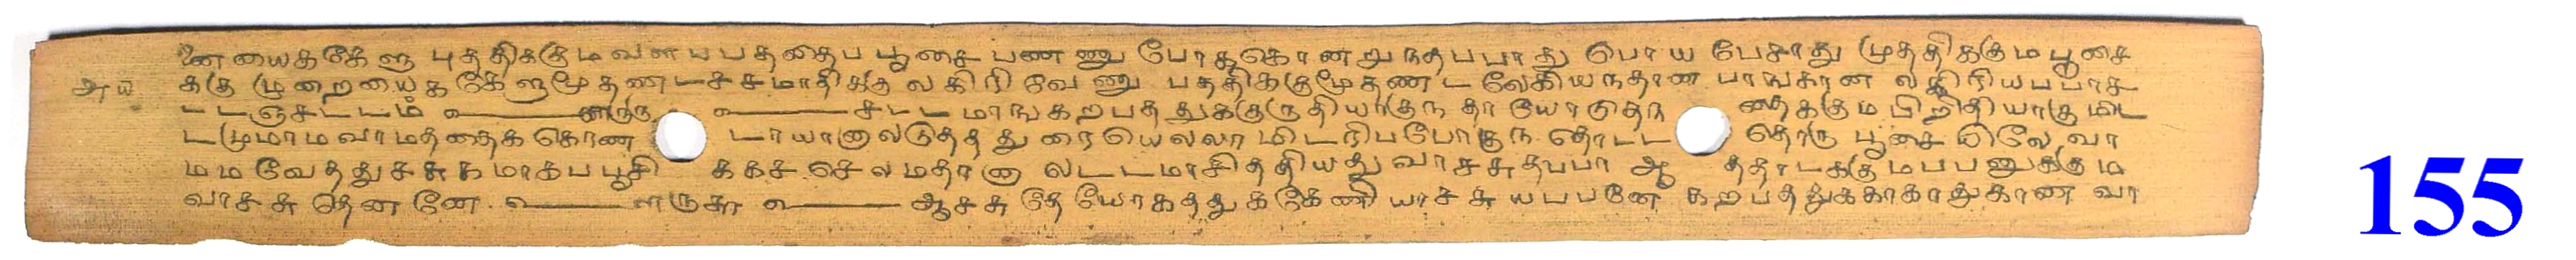 னையைககேளு புததிககுமவளயபதைப பூசை பணணு போதகொனறுநதபபாது பொய பேசாது முததிககும பூசை
ககு முறையைக கேளுமூதணடசசமாதிககு வகிரி வேணு பததிககுமூதணட லேகியநதான பாஙகான வகிரியபபாச
டடஞசடடம ளருரு சடடமாஙகறபததுககுருதியாகுந தாயோகுதந தைககும பிறிதியாகுமிட
டமுமாமவாமததைக கொண டாயானாலடுததது ரையெலலா மிடரிபபோகுந தொடட தொரு பூசையிலே வா
மமவேததுசசுகமாகபபூசி ககச செலமதானா லடடமாசிததியதுவாசசுதபபா ஆ ததாடககுமபபனுககும
வாசசு தென னே ளருசு ஆசசுதே யோகததுககேணி யாசசு யபபனே கறபததுககாகாதுகாண வா
155